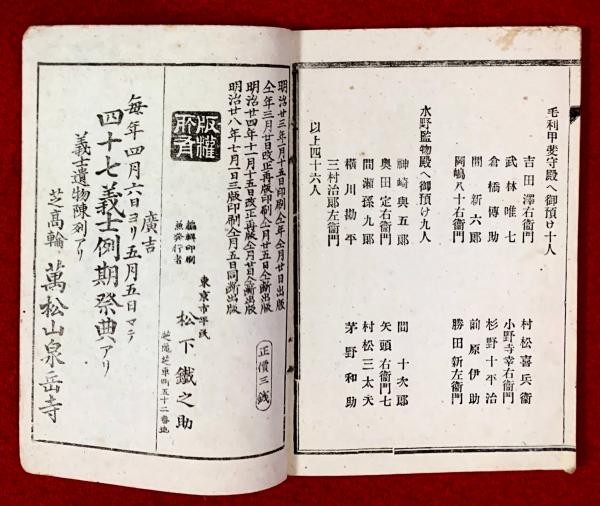 毛利甲斐守殿へ御預け十人
吉田澤右衛門
武林唯七
倉橋傳助
間新六郎
阿嶋八十右衛門
村松喜兵衛
小野寺幸右衛門
杉野十平治
前原伊助
勝田新左衛門
水野監物殿へ御預け九人
神崎與五郎
奥田定右衛門
間瀬孫九郎
横川勘平
三村治郎左衛門
間十次郎
矢頭右衛門七
村松三太夫
茅野和助
以上四十六人
明治廿三年一月十五日印刷仝年仝月廿日出版
仝年三月廿日改正再版印刷仝月廿五日仝断出版
明治廿四年十一月十五日改正再版仝月廿日仝断出版
明治廿八年七月一日三版印刷仝月五日同断出版
正價三錢
版權所有
編輯印刷
兼發行者
東京市平民
松下鐵之助
芝區芝車町五十二番地
廣吉
毎年四月六日ヨリ五月五日マテ
四十七義士例期祭典アリ
義士遺物陳列アリ
芝高輪
萬松山泉岳寺